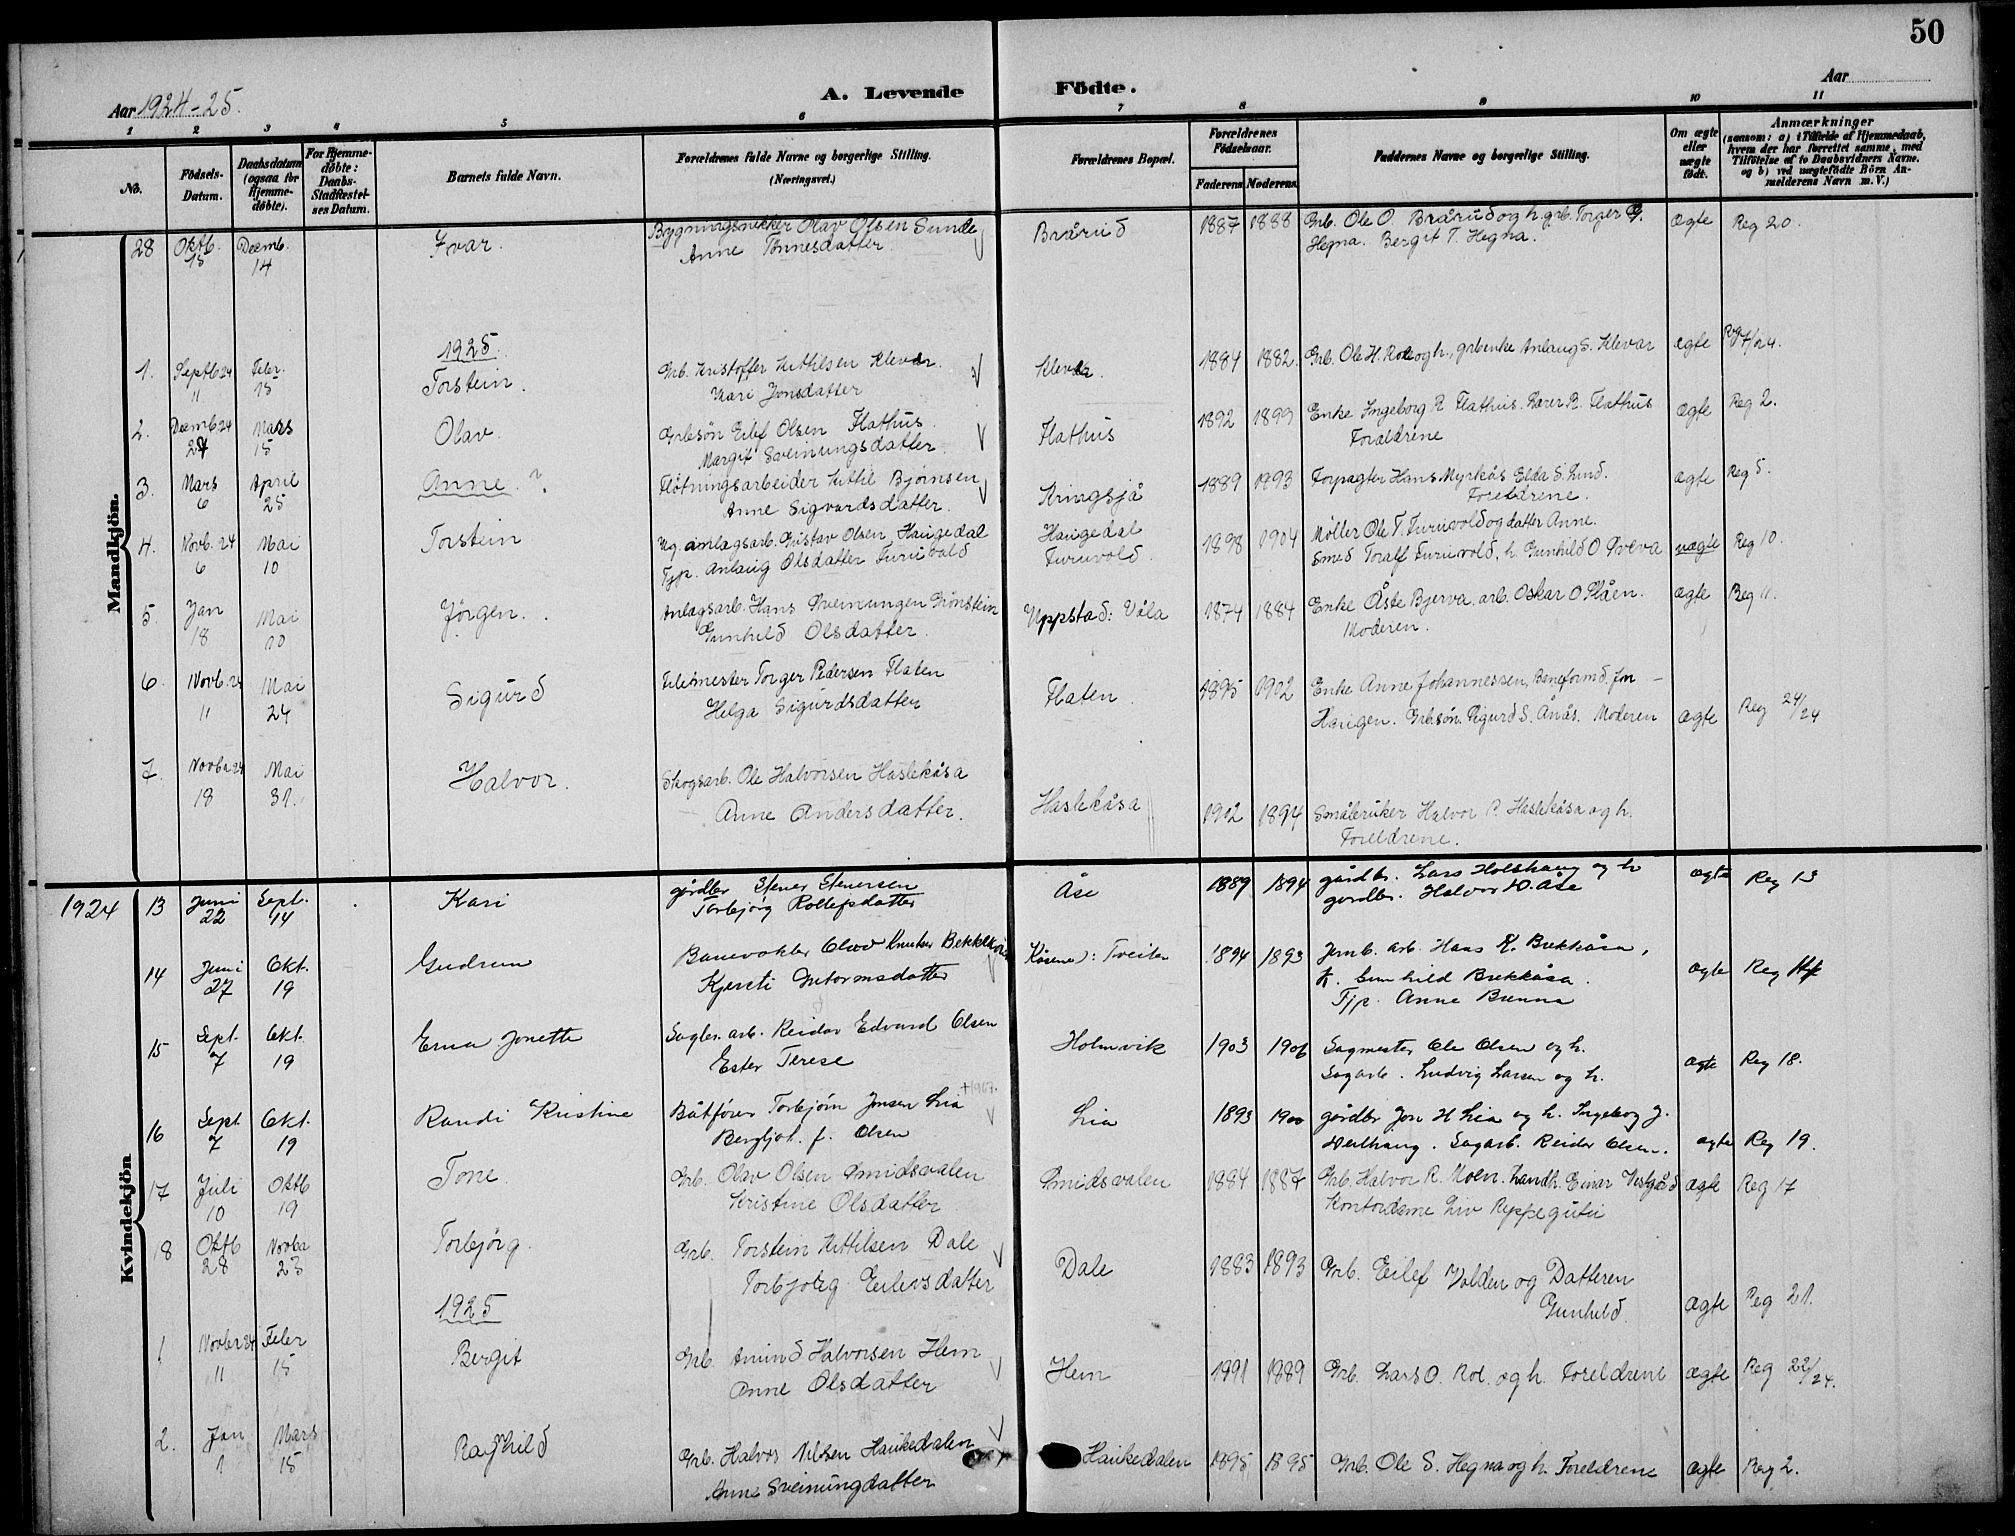 50
Aar 1924-25.
A. Levende Födte.
Aar
1 2 3 4 5 6 7 8 9 10 11
No.
Födsels-Datum.
Daabsdatum (ogsaa for Hjemme-döbte).
For Hjemme-döbte: Daabs-Stadfæstel-ses Datum.
Barnets fulde Navn.
Forældrenes fulde Navne og borgerlige Stilling. (Næringsvei.)
Forældrenes Bopæl.
Forældrenes Födselsaar.
Faderens Moderens
Faddernes Navne og borgerlige Stilling.
Om ægte eller uægte født.
Anmærkninger
(saasom: a) i Tilfælde af Hjemmedaab, hvem der har forrettet samme, med Tilföielse af to Daabsvidners Navne. og b) ved uægtefödte Börn An-melderens Navn m. V.)
Mandkjön.
28 Oktb. 15 Decemb. 14 Ivar. Bygningssnekker Olav Olsen Sunde Brårud 1887 1888 Grb. Ole O. Brårud og h. grb. Torger G. ægte Reg 20.
Anne Tønnesdatter Hegna. Bergit T. Hegna.
1925
1. Septb 24 11 Febr. 15 Torstein. Grb. Kristoffer Kittilsen Klevar. Klevar. 1884 1882. Grb. Ole H. Roe og h., grbenke Anlaug S. Klevar ægte Reg /24.
Kari Jonsdatter
2. Decemb 24 27 Mars 15 Olav. Grbsøn Eilef Olsen Flathus. Flathus 1892 1899 Enke Ingeborg R. Flathus. Lærer R. Flathus ægte Reg 2.
Margit Sveinungsdatter Foreldrene
3. Mars 6 April 25 Anne ? Fløtningsarbeider Kittil Bjørnsen Kringsjå 1889 1993 Forpagter Hans Myrkås Elda S. Lund. ægte Reg 5.
Anne Sigvardsdatter. Foreldrene.
4. Novb. 24 6 Mai 10 Torstein Ug. anlagsarb. Gustav Olsen Haugedal Haugedal 1898 1904 Møller Ole T. Furuvold og datter Anne. uægte Reg 10.
Tjp. Anlaug Olsdatter Furuvold Furuvold Smed Toralf Furuvold, h. Gunhild O. Øveva
5. Jan 18 Mai 10 Jörgen. Anlagsarb. Hans Sveinungen Grönstein Uppstad: Våla 1874 1884 Enke Åste Bjerva, arb. Oskar O. Plåen. ægte Reg 11.
Gunhild Olsdatter. Moderen.
6. Novb. 24 11 Mai 24 Sigurd Telemester Torger Pedersen Flaten Flaten 1895 1902 Enke Anne Johannessen, Baneformd. Jon
Helga Sigurdsdatter Haugen. Grbsøn. Sigurd S. Anås. Moderen ægte Reg 24/24
7. Novbr 24 18 Mai 31. Halvor. Skogsarb. Ole Halvorsen Haslekåsa Haslekåsa 1902 1894 Småbruker Halvor P. Haslekåsa og h.
Anne Andersdatter. Foreldrene.
Kvindekjön
1924 13 Juni 22 Sept. 14 Kari gårdbr Stener Stenersen Åse 1889 1894 gårdbr. Lars Holshaug og h ægte Reg 13
Torbjörg Rollefsdatter gårdbr. Halvor D. Åse
14 Juni 27 Okt. 19 Gudrun Banevokter Olav Knutsen Bekkåsa : Tveiten 1894 1893 Jernb. arb. Hans K. Brekkåsa, ægte Reg 14
Kjersti Gutormsdatter h. Gunhild Brekkåsa.
Tjp. Anne Brenna
15 Sept. 7 Okt. 19 Erna Jonette Sagbr. arb. Reidar Edvard Olsen Holmvik 1903 1906 Sagmester Ole Olsen og h. ægte Reg 18.
Ester Terese Sagarb. Ludvig Larsen og h.
16 Sept. 7 Okt. 19 Randi Kristine Båtfører Torbjörn Jonsen Lia +1967. Lia 1893 1900 gårdbr Jon H Lia og h. Ingeborg J. ægte Reg 19.
Bergljot f. Olsen Verthaug. Sagarb. Reidar Olsen.
17 Juli 10 Oktb 19 Tone Grb. Olav Olsen Smidsvalen Smidsvalen 1884 1887 Grb. Halvor R. Moen. Landh. Einar Vestgård ægte Reg 17
Kristine Olsdatter Kontordame Liv Ryppeguten
18 Oktb 28 Novbr 23 Torbjörg. Grb. Torstein Kittilsen Dale Dale 1883 1893 Grb. Eilef Valden og Datteren ægte Reg 21.
Torbjørg Eilevsdatter Gunhild.
1925
1 Novbr 24 11 Febr 15 Bergit Grb. Amund Halvorsen Hem Hem 1991 1889 Grb. Lars O. Roe. og h. Foreldrene ægte Reg 22/24.
Anne Olsdatter
2. Jan 1 Mars 15 Ragnhild Grb. Halvor Nilsen Haukedalen Haukedalen 1895 1895 Grb. Ole S. Hegna og h. Foreldrene ægte Reg 2.
Anne Sveinungdatter